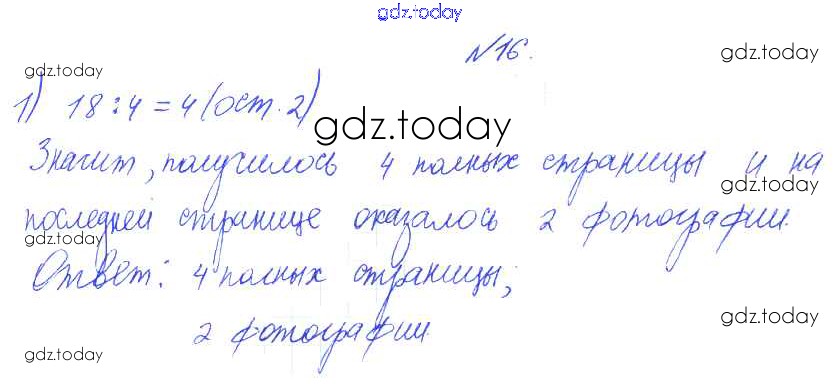 gdz.today
№16.
gdz.today
gdz.today
1) 18:4=4(ост.2)
gdz.today
Значит, получилось 4 полных страницы и на
gdz.today
последней странице оказалось 2 фотографии.
gdz.today
Ответ: 4 полных страницы;
gdz.today
2 фотографии
gdz.today